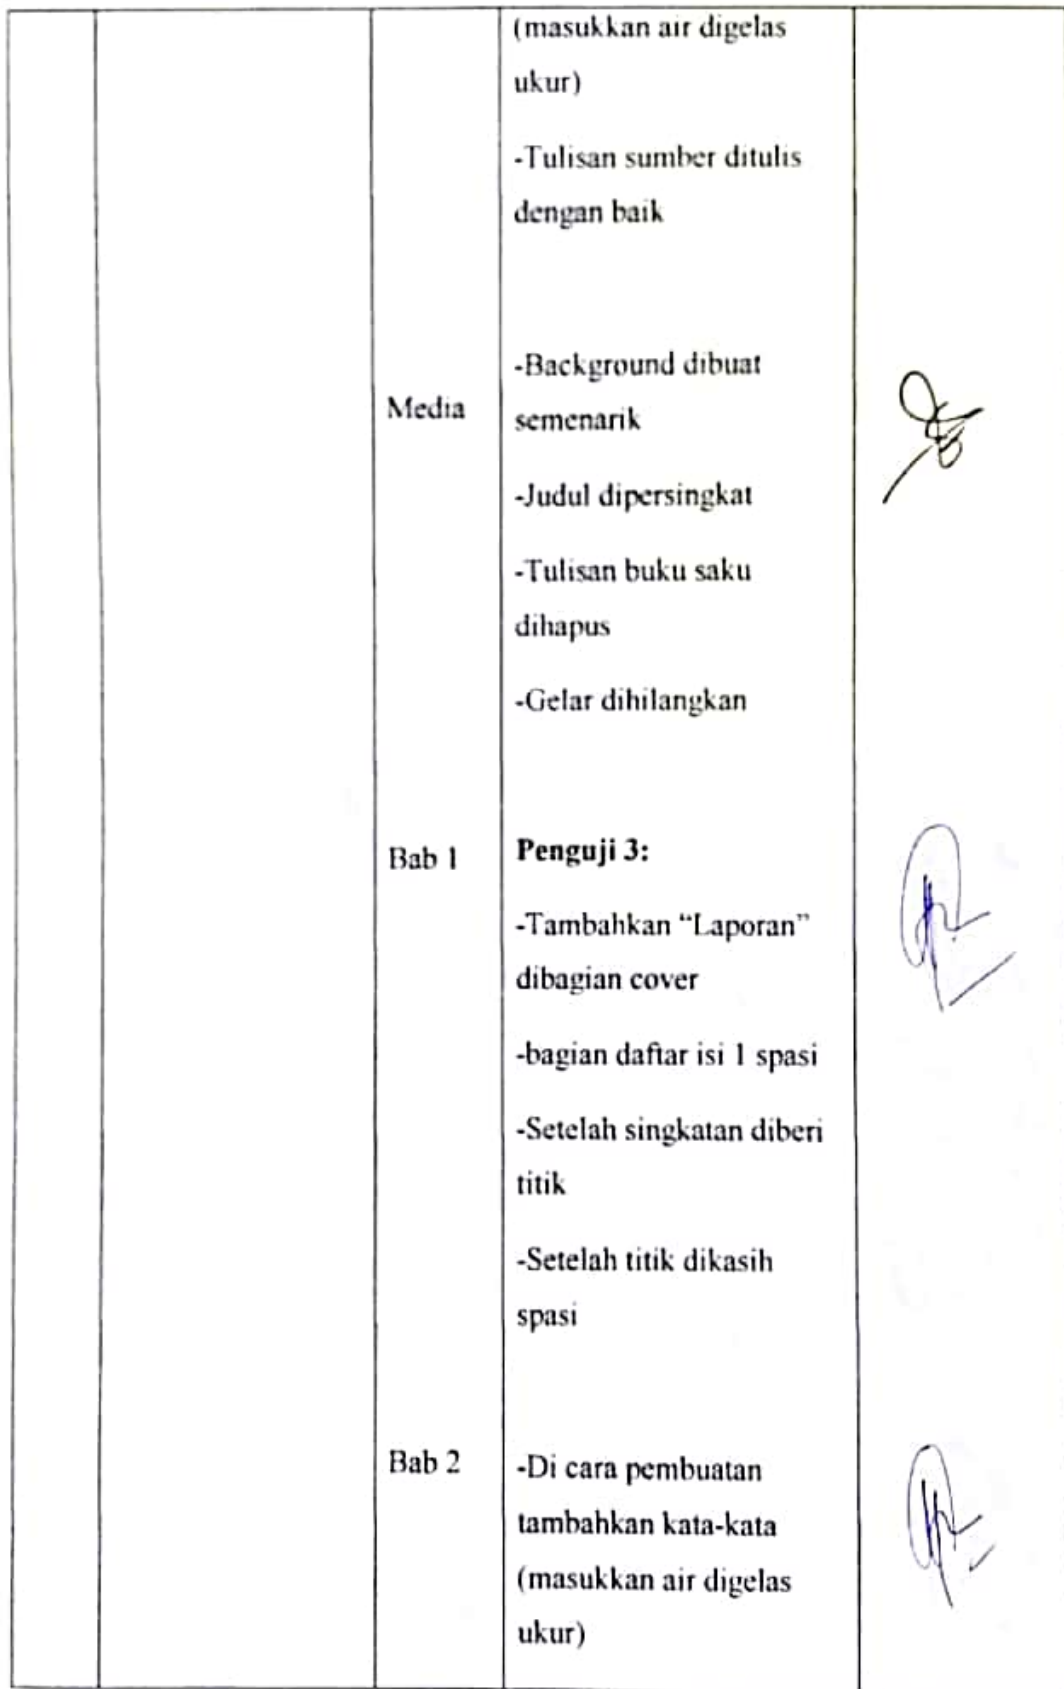 (masukkan air digelas
ukur)
-Tulisan sumber ditulis
dengan baik
Media
-Background dibuat
semenarik
-Judul dipersingkat
-Tulisan buku saku
dihapus
-Gelar dihilangkan
Bab 1
Penguji 3:
-Tambahkan “Laporan”
dibagian cover
-bagian daftar isi 1 spasi
-Setelah singkatan diberi
titik
-Setelah titik dikasih
spasi
Bab 2
-Di cara pembuatan
tambahkan kata-kata
(masukkan air digelas
ukur)